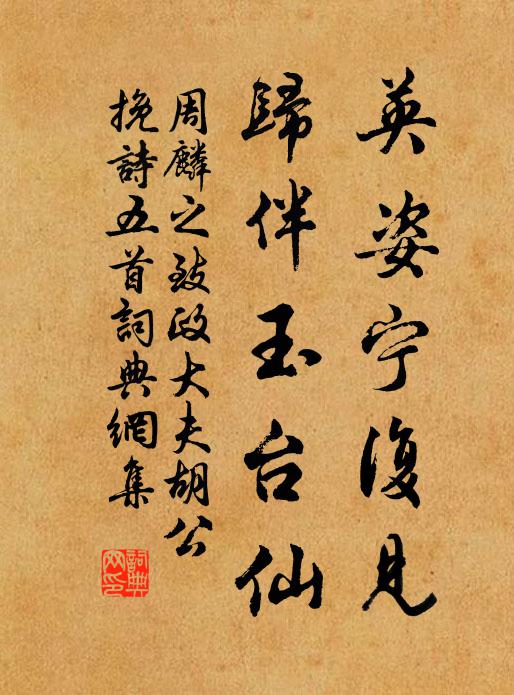 英姿宁復見
歸伴玉台仙
周麟之致政大夫胡公
挽詩五首詞典網集
詞典
网印